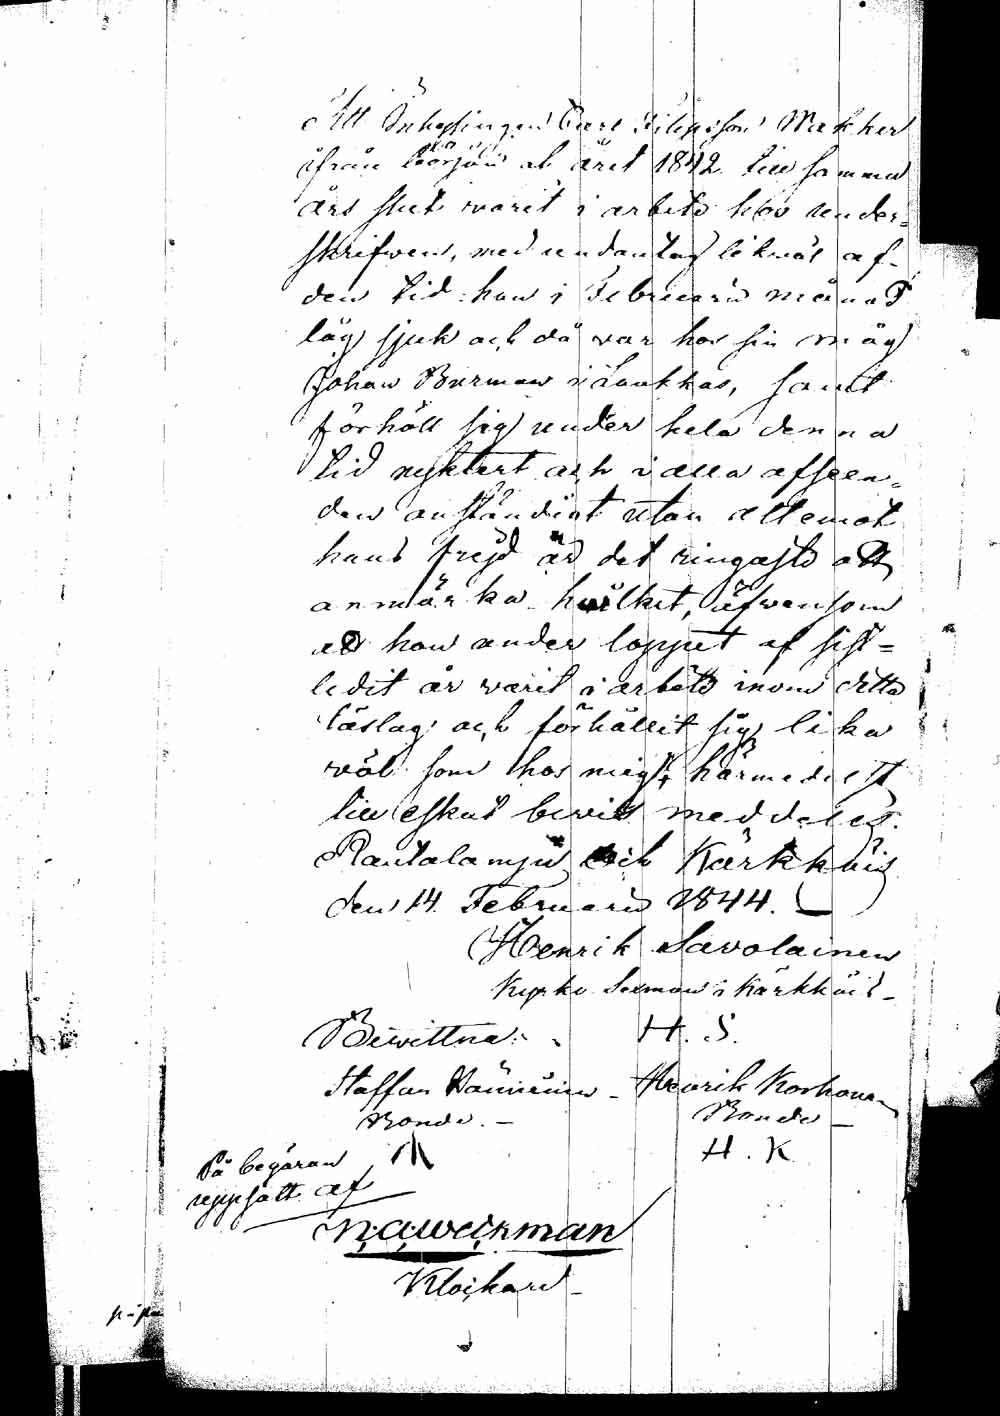 Att Inhysingen Carl Filipsson Makker
ifrån början af året 1842 till samma
års slut varit i arbete hos under=
skrifwen, med undantag likwäl af
den tid han i Februarii månad
låg sjuk och då war hos sin måg
Johan Burman i Laukkas, samt
förhöll sig under hela denna
tid nyktert och i alla afseen=
den anständigt utan att emot
hans frejd är det ringaste att
anmärka hwilket, äfwensom
att han under loppet af sist=
ledit år warit i arbete inom detta
läslag och förhållit sig lika
wäl som hos mig, härmedelst
till äskat bewis meddeles.
Rautalampi och Kärkkäis
den 14 Februarii 1844.
Henrik Savolainen
Kyrko i Kärkkäis
Bewittna:
H. S.
Staffan Henrik Korhonen
Bonde. Bonde
H. K
På begäran
uppsatt af
N. A. Weckman
Klockare